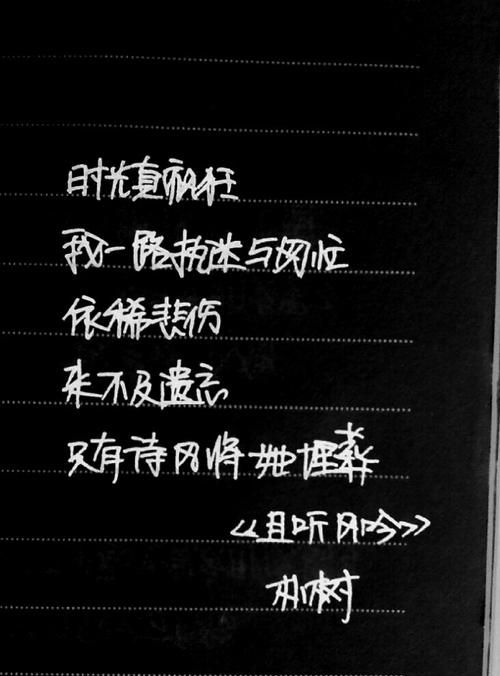 时光真疯狂
我一路执迷与匆忙
依稀悲伤
来不及遗忘
只有诗风将她埋葬
《且听风吟》
朴树